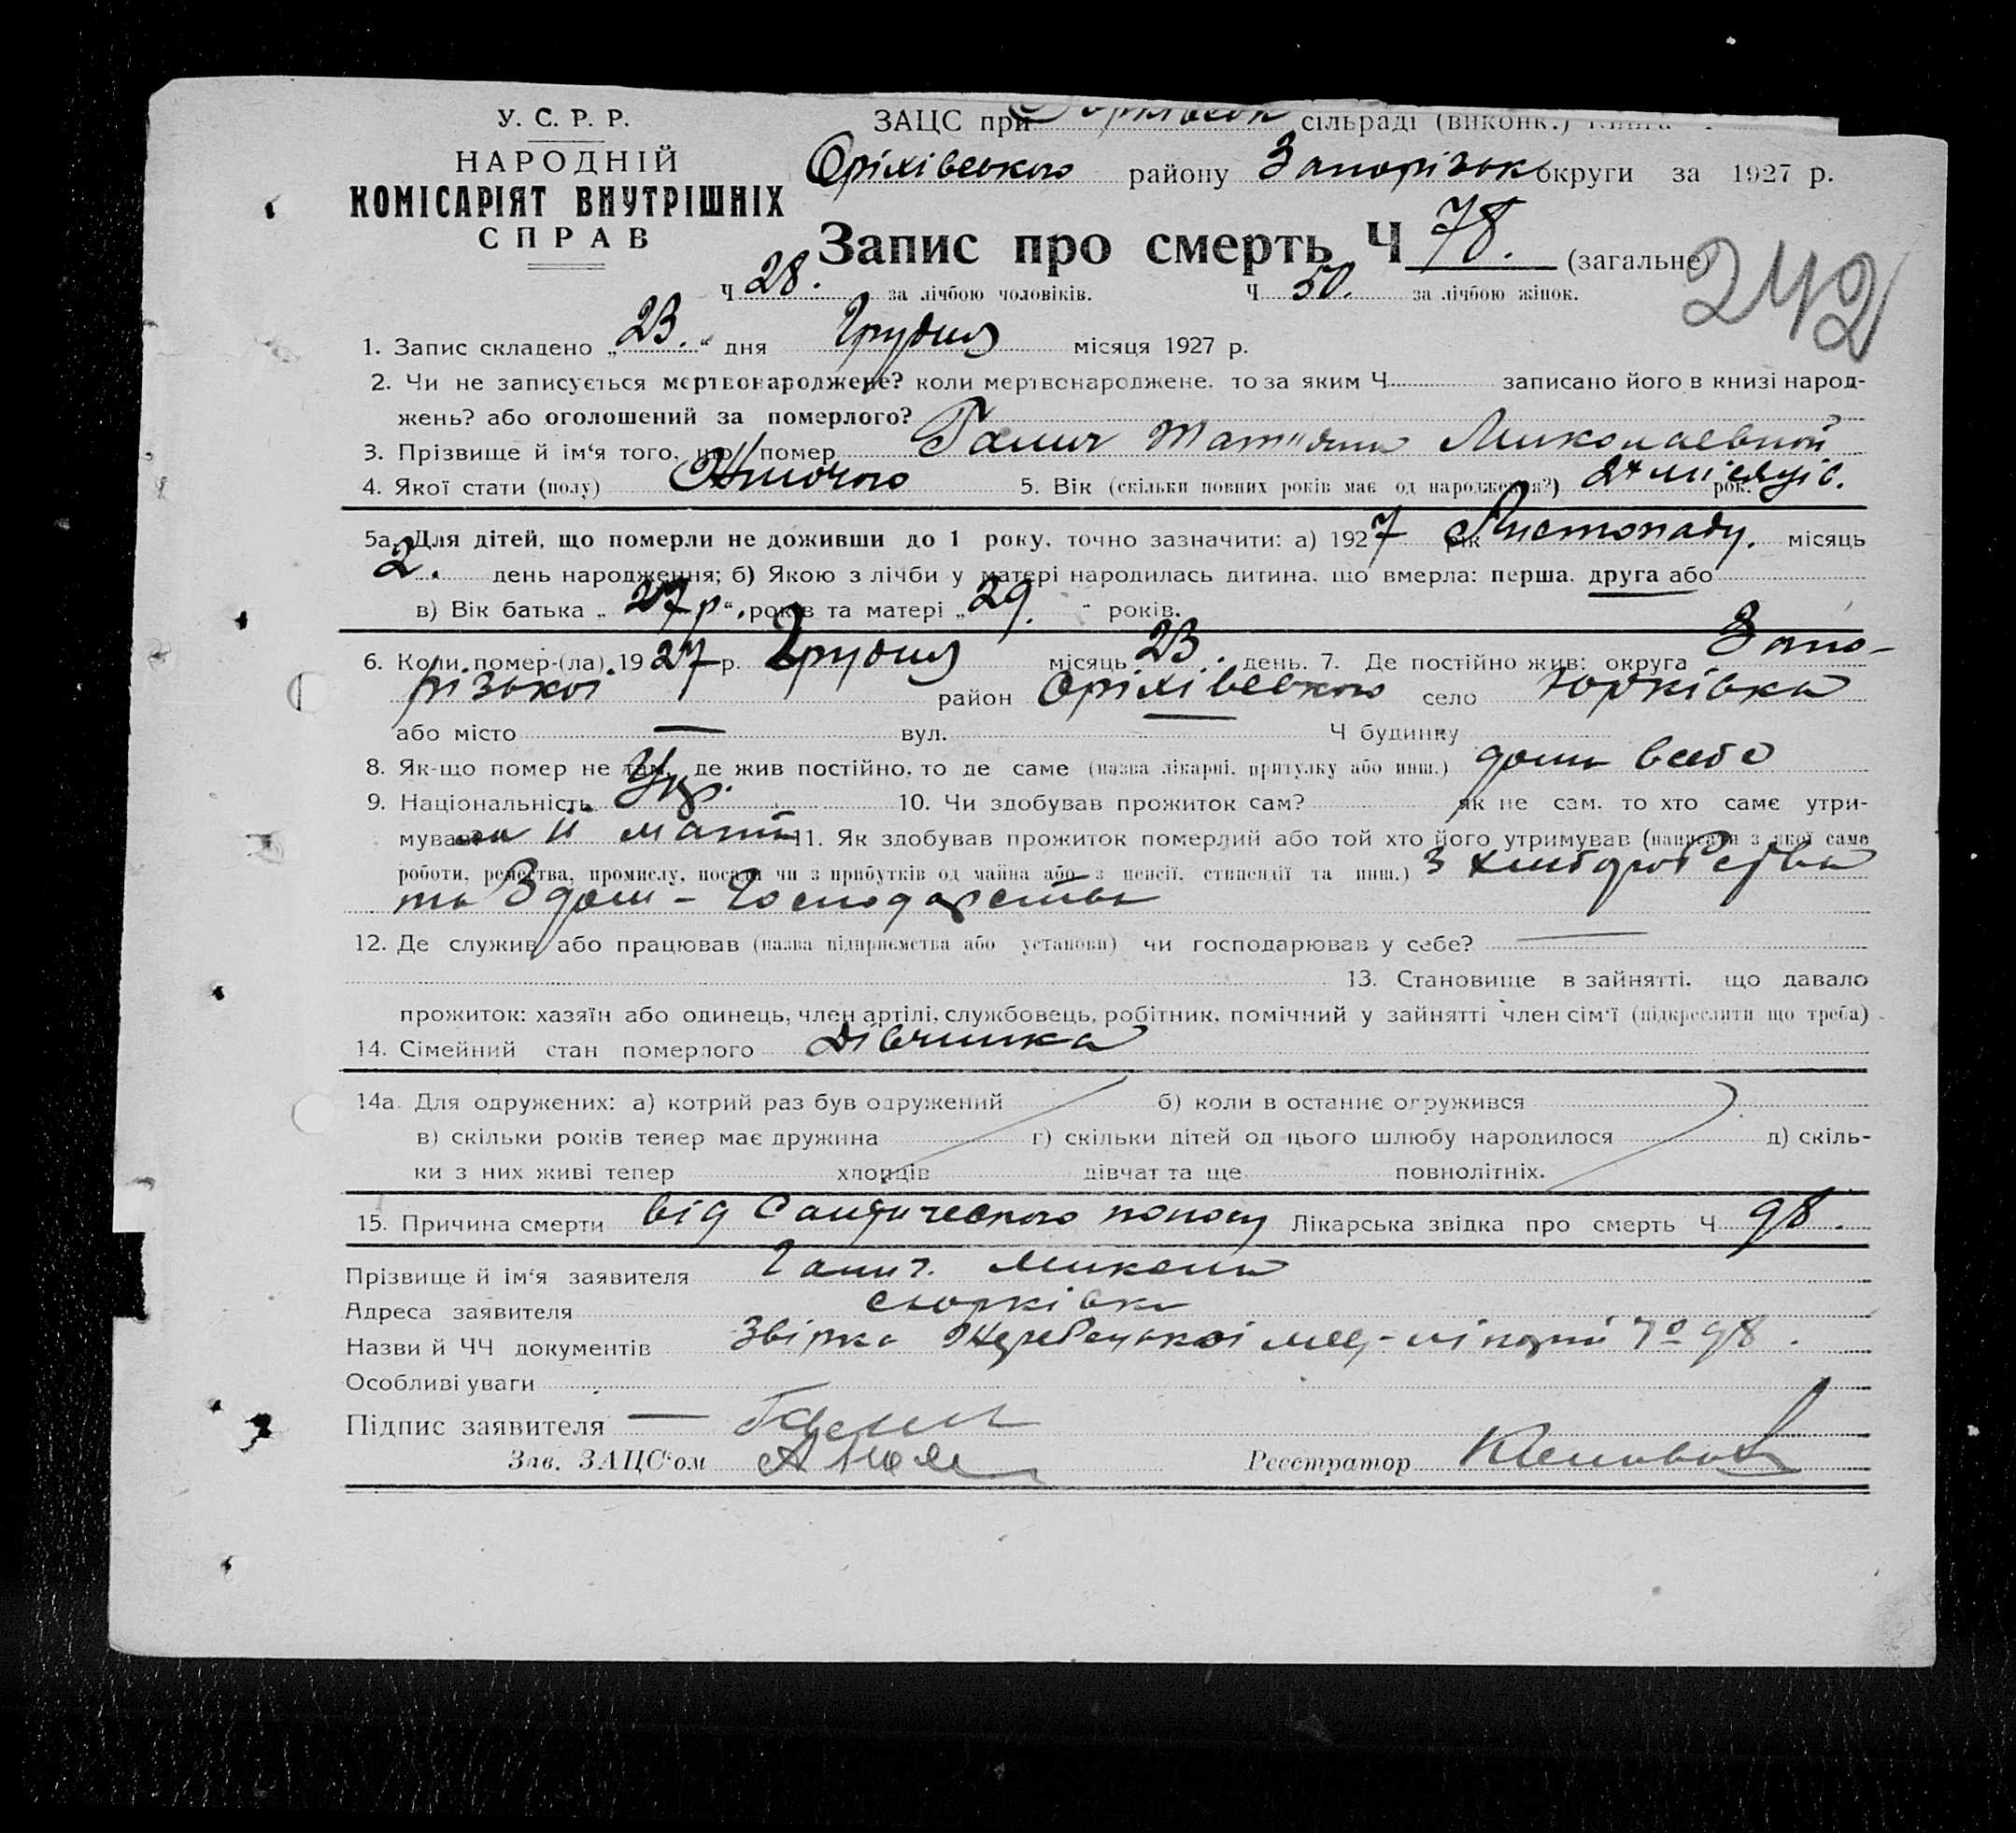 У. С. Р. Р.
НАРОДНІЙ
КОМІСАРІЯТ ВНУТРІШНІХ
СПРАВ
ЗАЦС при сільраді (виконк.)
Оріхівського району Запорізьк округи за 1927 р.
Запис про смерть Ч 78. (загальне)
242
Ч 28. за лічбою чоловіків. Ч 50. за лічбою жінок.
1. Запис складено „23.“ дня Грудня місяця 1927 р.
2. Чи не записується мертвонароджене? коли мертвонароджене, то за яким Ч записано його в книзі народ-
жень? або оголошений за померлого?
3. Прізвище й ім‘я того, що помер Ганич Татьяна Миколаевной
4. Якої стати (полу) Жіночого 5. Вік (скільки повних років має од народження?) місяців. рок.
5а. Для дітей, що померли не доживши до 1 року, точно зазначити: а) 1927 рік Листопаду. місяць
2. день народження; б) Якою з лічби у матері народилась дитина, що вмерла: перша, друга або
в) Вік батька „27 р“. років та матері „29. “ років.
6. Коли помер-(ла) 1927 р. Грудня місяць 23. день. 7. Де постійно жив: округа Запо-
різької район Оріхівського село Юрківка
або місто — вул. — Ч будинку
8. Як-що помер не там, де жив постійно, то де саме (назва лікарні, притулку або инш.) дома
9. Національність Укр. 10. Чи здобував прожиток сам? як не сам, то хто саме утри-
мував й мати 11. Як здобував прожиток померлий або той хто його утримував (написати з якої саме
роботи, ремества, промислу, посади чи з прибутків од майна або з пенсії, стипендії та инш.) з хліборобства
та Здом - Господарства
12. Де служив або працював (назва підприємства або установи) чи господарював у себе? —
13. Становище в зайнятті, що давало
прожиток: хазяїн або одинець, член артілі, службовець, робітник, помічний у зайнятті член сім‘ї (підкреслити що треба)
14. Сімейний стан померлого Дівчинка
14а. Для одружених: а) котрий раз був одружений б) коли в останнє огружився
в) скільки років тепер має дружина г) скільки дітей од цього шлюбу народилося д) скіль-
ки з них живі тепер хлопців дівчат та ще повнолітніх.
15. Причина смерти від поносу Лікарська звідка про смерть Ч 98.
Прізвище й ім‘я заявителя Ганич. Микола
Адреса заявителя с Юрківки
Назви й ЧЧ документів Звідка Жеребецької № 98.
Особливі уваги
Підпис заявителя — Ганич
Зав. ЗАЦС‘ом
Реєстратор